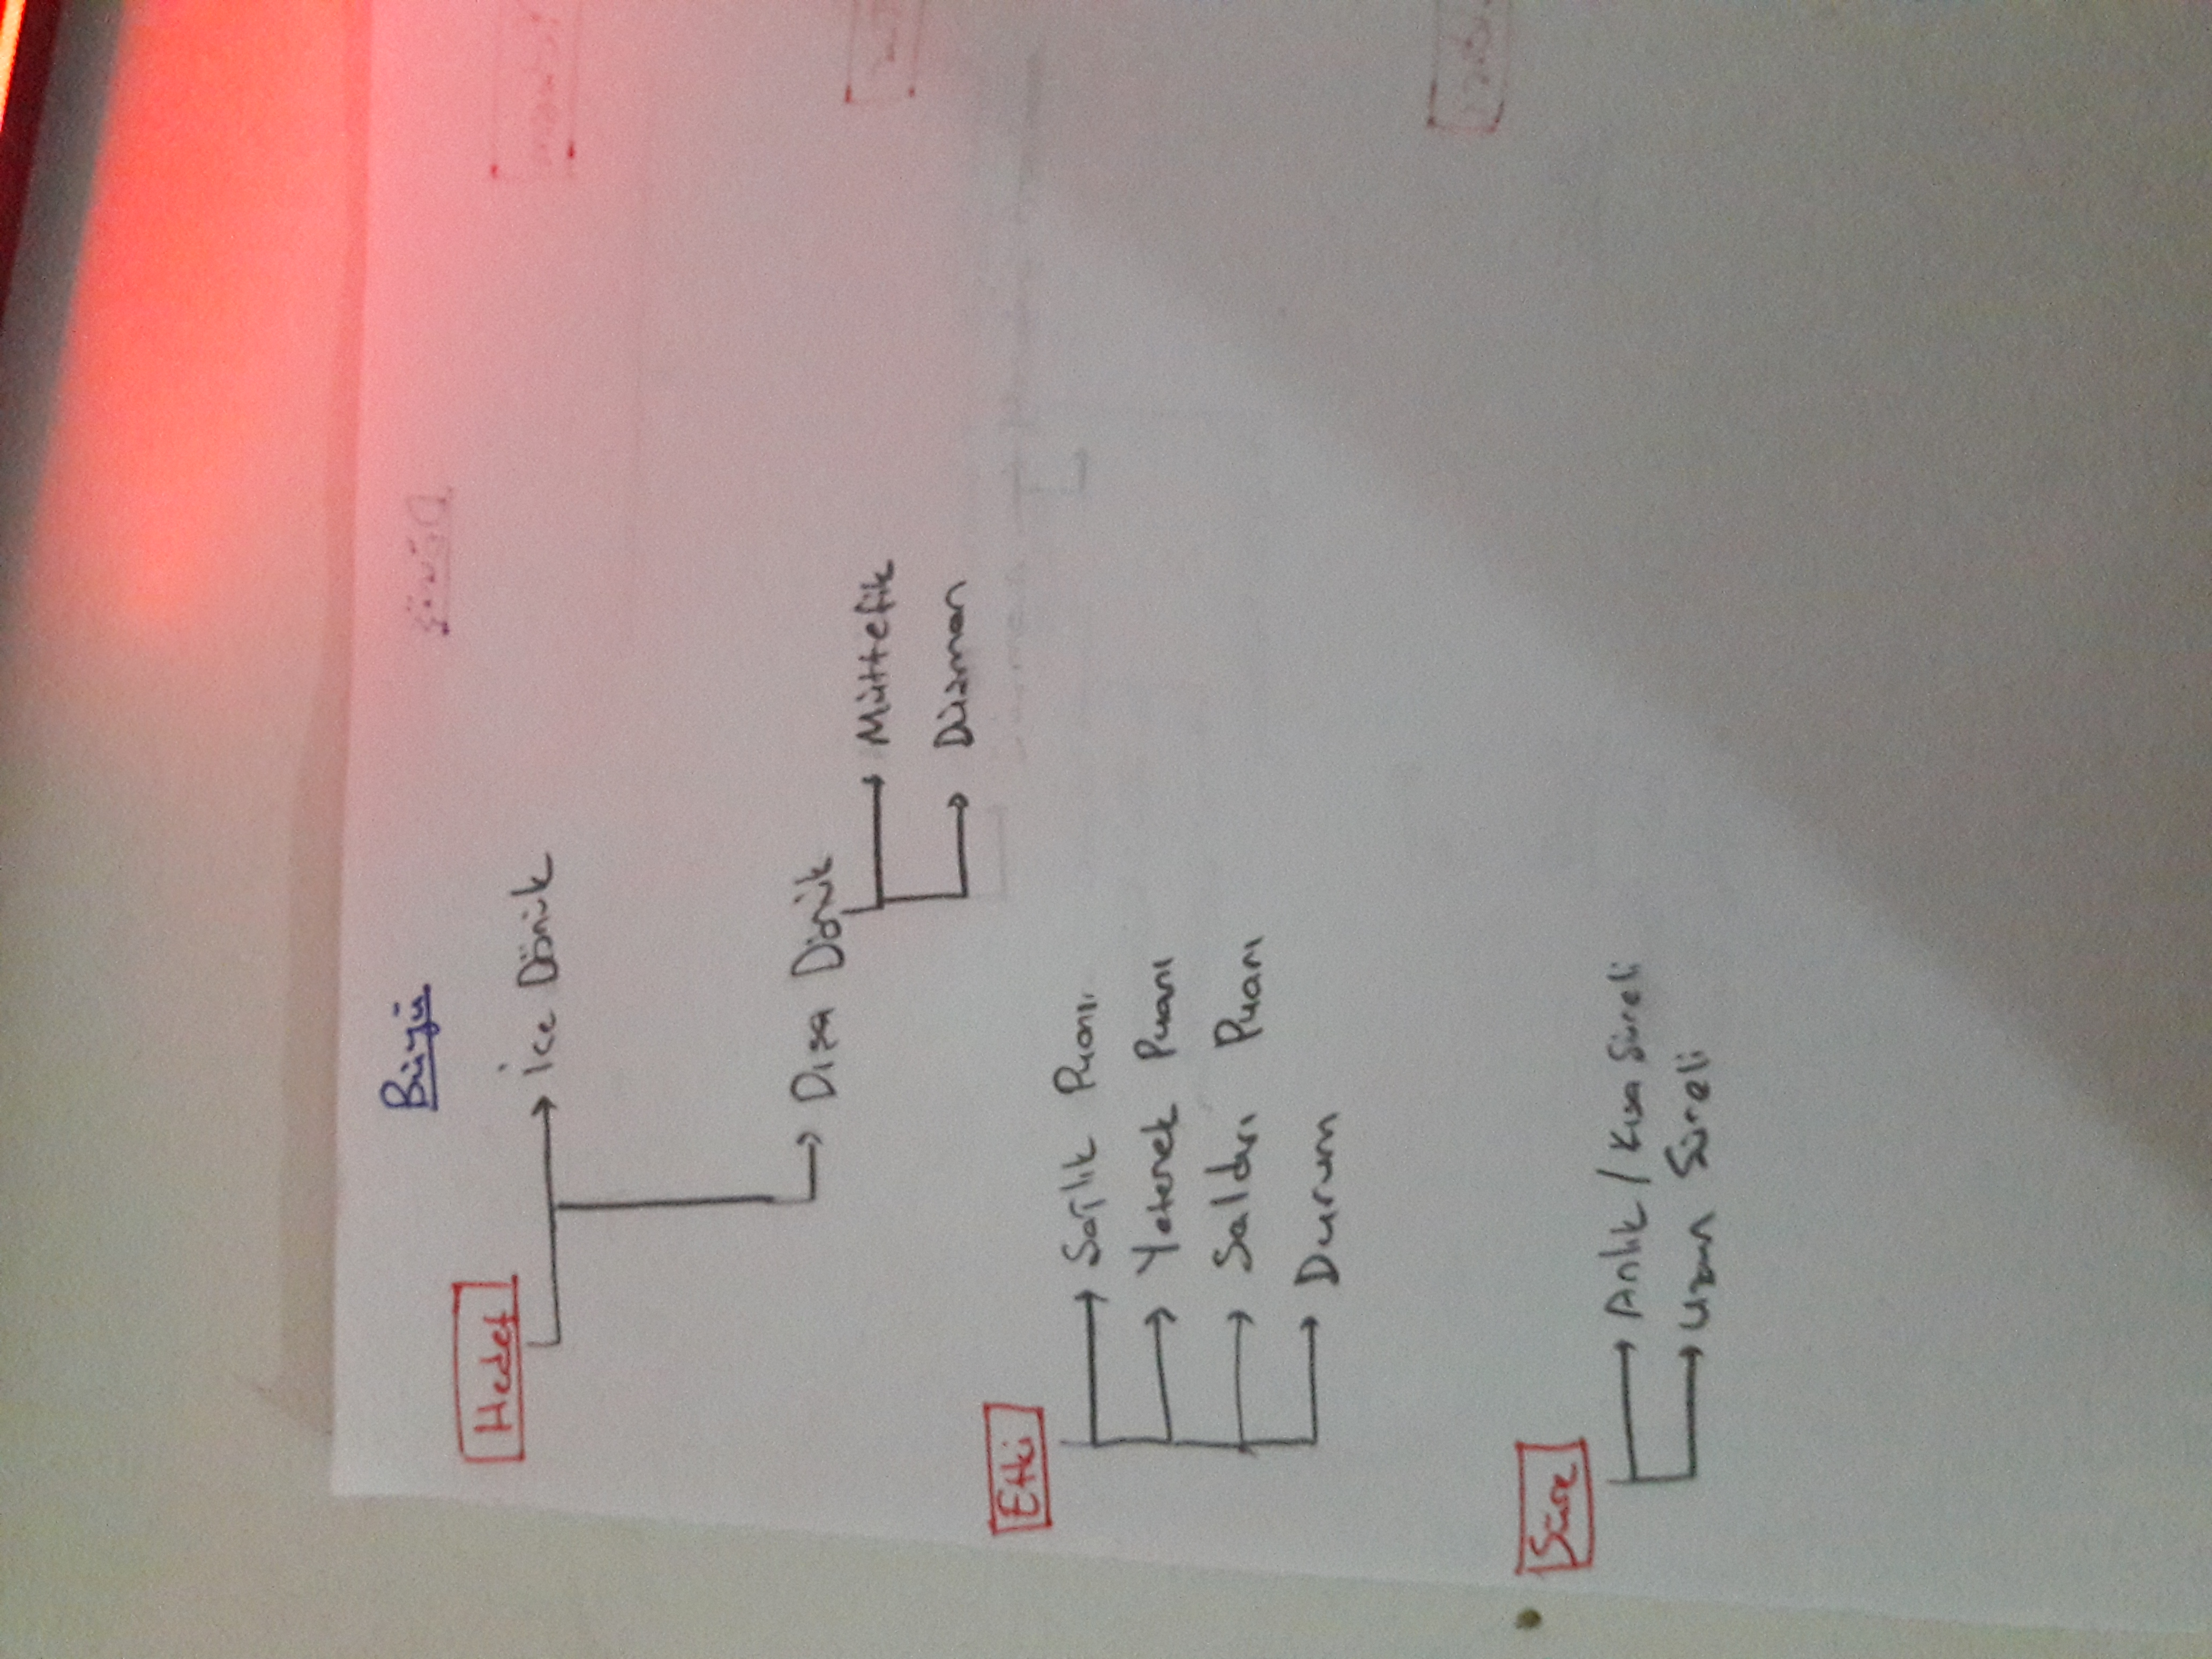 Büyü
Hedef
İçe Dönük
Dışa Dönük
Müttefik
Düşman
Etki
Sağlık Puanı
Yetenek Puanı
Saldırı Puanı
Durum
Süre
Anlık / Kısa Süreli
Uzun Süreli